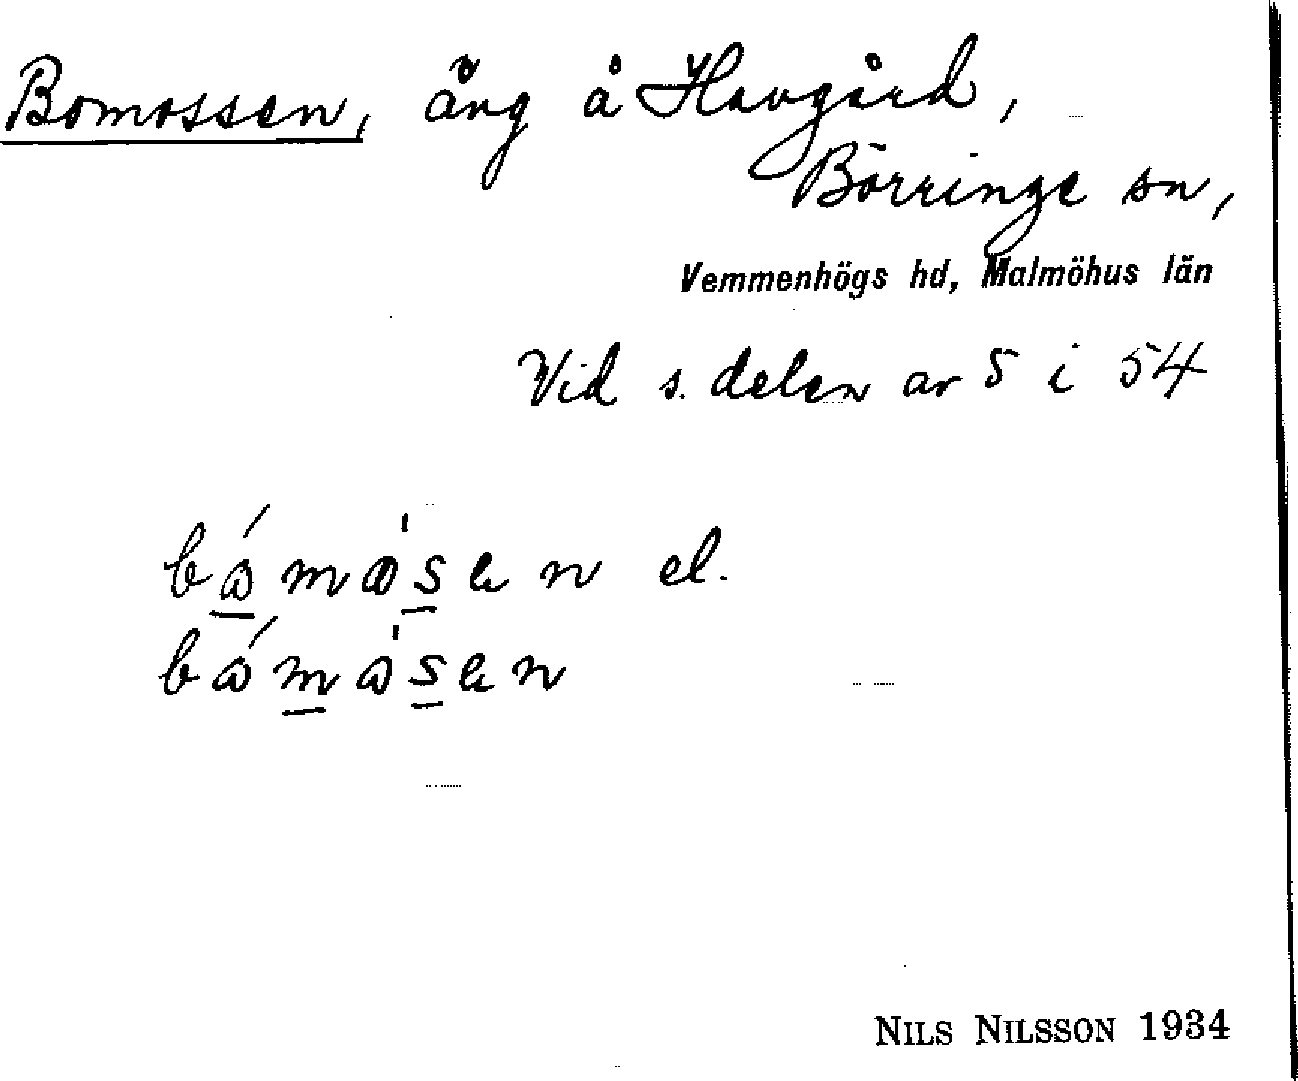 Bomossen, äng å Havgård,
Börringe sn,
Vemmenhögs hd, Malmöhus län
Vid s. delen av 5 i 54
bǻmåsen el.
bǻmåsen
NILS NILSSON 1934